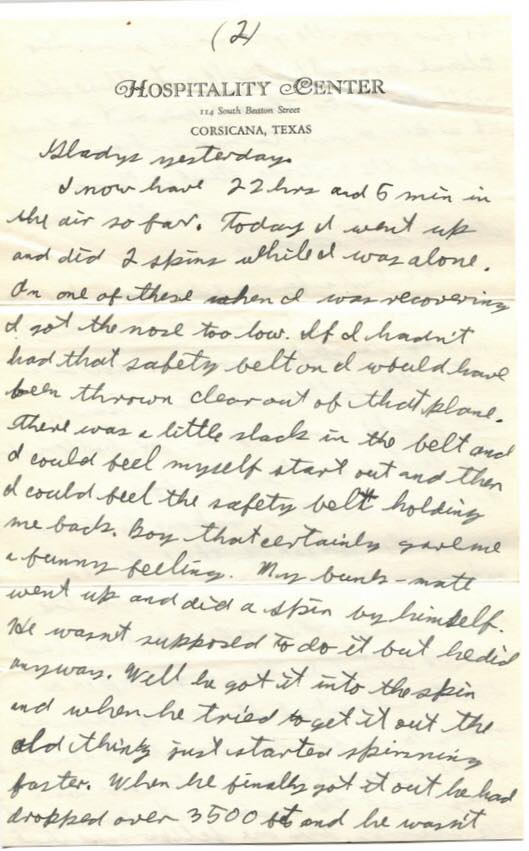 (2)
HOSPITALITY CENTER
114 South Beaton Street
CORSICANA, TEXAS
Gladys yesterday.
I now have 22 hrs and 5 min in
the air so far. Today I went up
and did 2 spins while I was alone.
On one of these when I was recovering
I got the nose too low. If I hadn't
had that safety belt on I would have
been thrown clear out of that plane.
There was a little slack in the belt and
I could feel myself start out and then
I could feel the safety belt holding
me back. Boy that certainly gave me
a funny feeling. My bunk-mate
went up and did a spin by himself.
He wasn't supposed to do it but he did
anyway. Well he got it into the spin
and when he tried to get it out the
old thing just started spinning
faster. When he finally got it out he had
dropped over 3500 ft and he wasn't